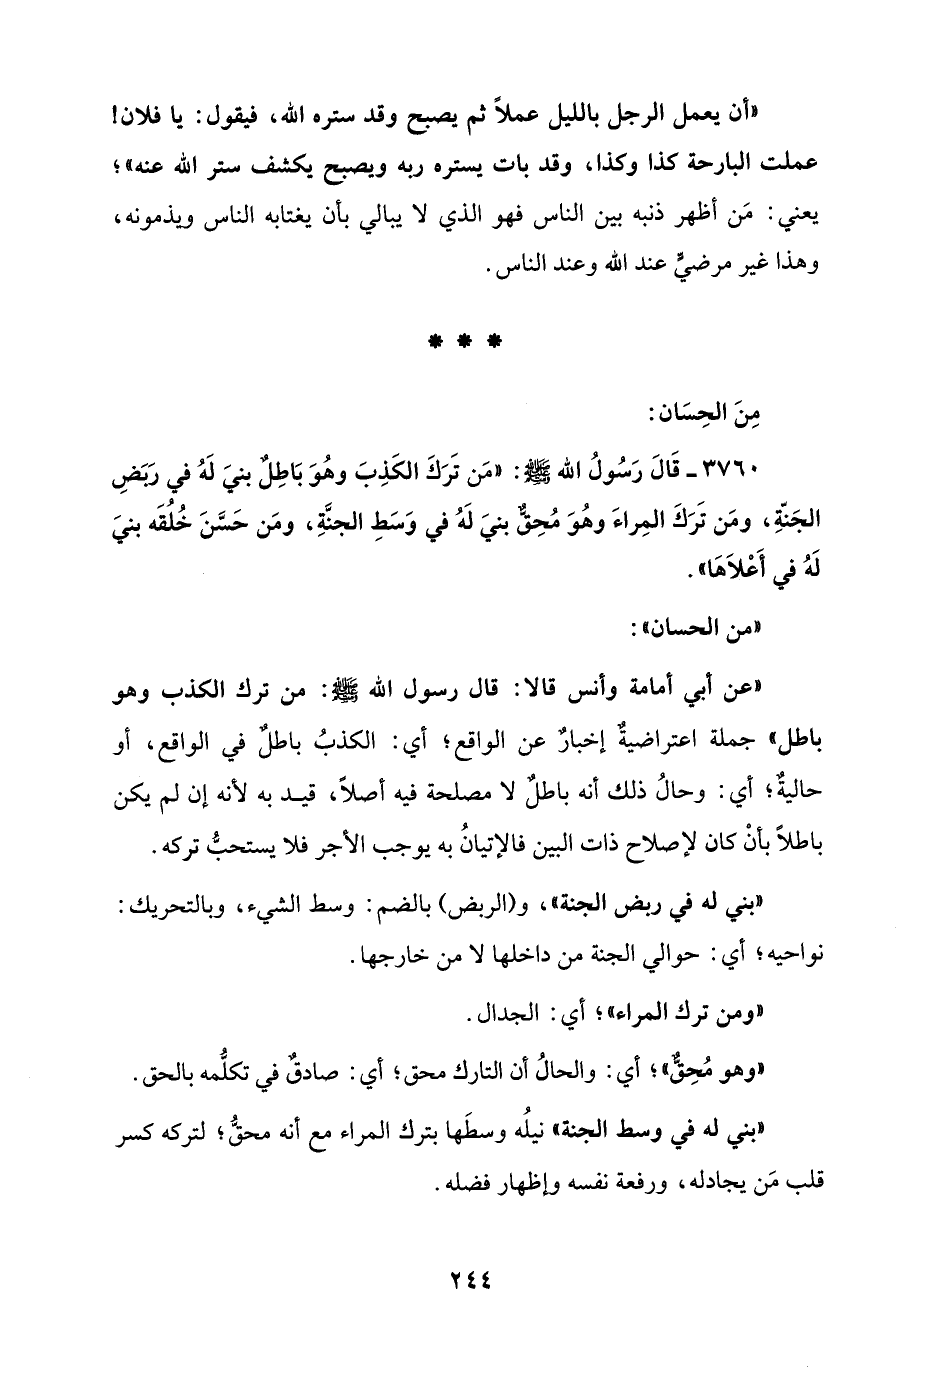 «أن يعمل الرجل بالليل عملاً ثم يصبح وقد ستره الله، فيقول: يا فلان!
عملت البارحة كذا وكذا، وقد بات يستره ربه ويصبح يكشف ستر الله عنه»؛
يعني: مَن أظهر ذنبه بين الناس فهو الذي لا يبالي بأن يغتابه الناس ويذمونه،
وهذا غير مرضيٍّ عند الله وعند الناس.
* * *
مِنَ الحِسَان:
٣٧٦٠ ـ قَالَ رَسُولُ الله ﷺ: «مَن تَرَكَ الكَذِبَ وهُوَ بَاطِلٌ بنيَ لَهُ في رَبَضِ
الجَنّةِ، ومَن تَرَكَ المِراءَ وهُوَ مُحِقٌّ بنيَ لَهُ في وَسَطِ الجنَّةِ، ومَن حَسَّنَ خُلُقَه بنيَ
لَهُ في أَعْلاَهَا».
«من الحسان»:
«عن أبي أمامة وأنس قالا: قال رسول الله ﷺ: من ترك الكذب وهو
باطل» جملة اعتراضيةٌ إخبارٌ عن الواقع؛ أي: الكذبُ باطلٌ في الواقع، أو
حاليةٌ؛ أي: وحالُ ذلك أنه باطلٌ لا مصلحة فيه أصلاً، قيد به لأنه إن لم يكن
باطلاً بأنْ كان لإصلاح ذات البين فالإتيانُ به يوجب الأجر فلا يستحبُّ تركه.
«بني له في ربض الجنة»، و(الربض) بالضم: وسط الشيء، وبالتحريك:
نواحيه؛ أي: حوالي الجنة من داخلها لا من خارجها.
«ومن ترك المراء»؛ أي: الجدال.
«وهو مُحِقٌّ»؛ أي: والحالُ أن التارك محق؛ أي: صادقٌ في تكلُّمه بالحق.
«بني له في وسط الجنة» نيلُه وسطَها بترك المراء مع أنه محقٌّ؛ لتركه كسر
قلب مَن يجادله، ورفعة نفسه وإظهار فضله.
٢٤٤